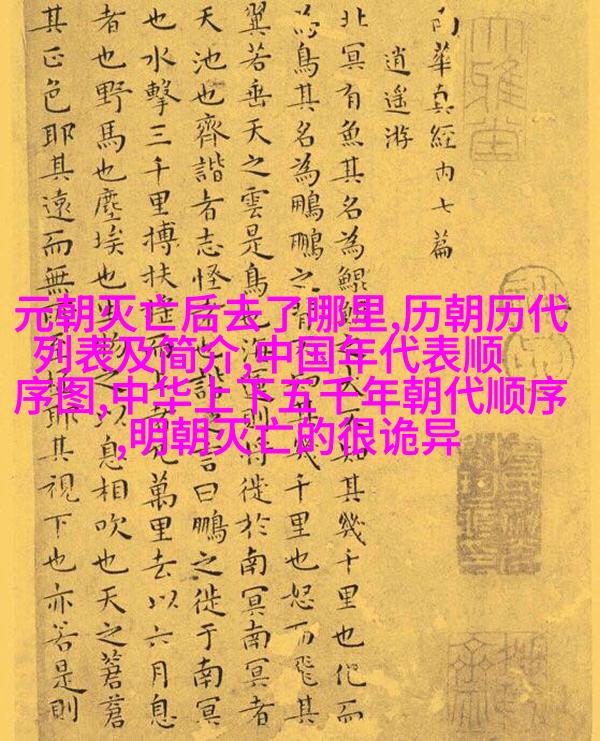 元朝灭亡后去了哪里,历朝历代
列表及简介,中国年代表顺
序图,中华上下五千年朝代顺序
,明朝灭亡的很诡异
南華真經内七篇
逍遥游
北冥有魚其名為鯤鯤之大不知其幾千里也化而
為鳥其名為鵬鵬之背不知其幾千里也怒而飛其
翼若垂天之雲是鳥也海運則將徙於南冥南冥者
天池也齊諧者志怪者也諧之言曰鵬之徙于南冥
也水擊三千里搏扶搖而上者九萬里去以六月息
者也野馬也塵埃也生物之以息相吹也天之蒼蒼
其正色耶其遠而無所至極耶其視下也亦若是則